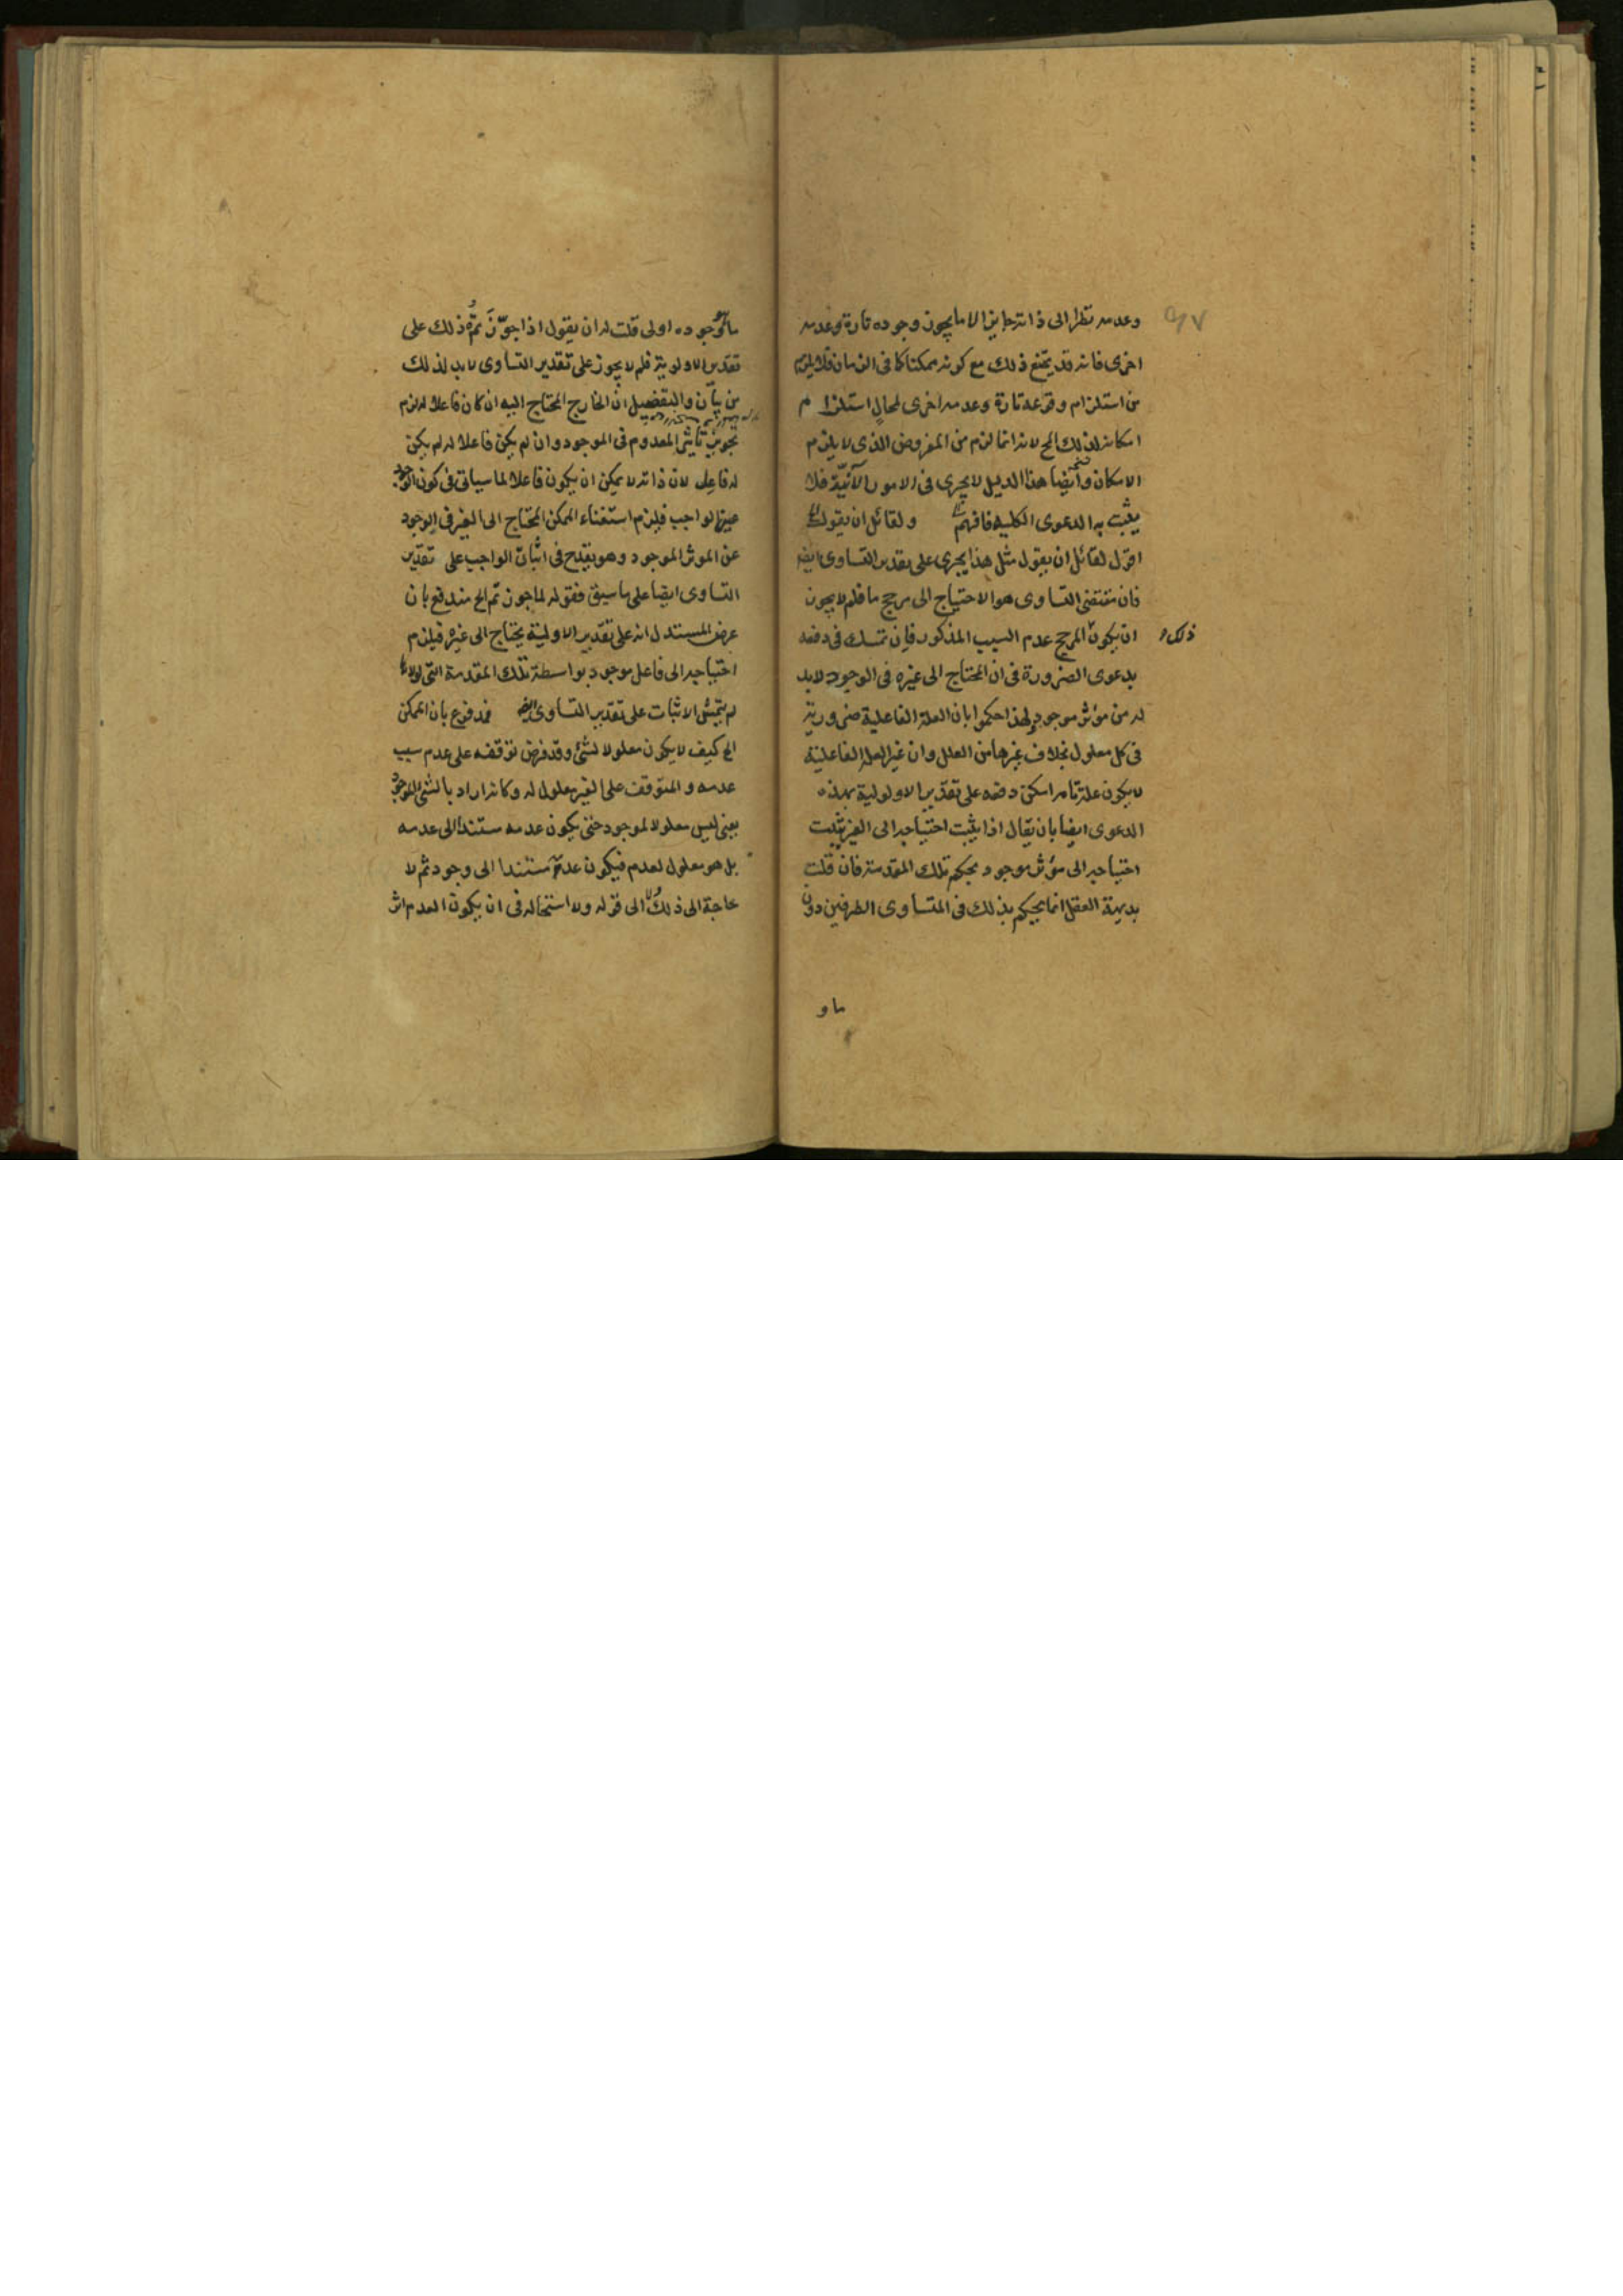 وعدمه نظرا الى ذاته جايز الا ما يجوز وجوده تارة وعدمه
اخرى فانه قد يمتنع ذلك مع كونه ممكنا كما فى الزمان فلا يلزم
من استلزام وقوعه تارة وعدمه اخرى لمحال استلزام
امكانه لذلك المح لانه انما لزم من المفروض الذى لا يلزم
الامكان وايضا هذا الدليل لا يجرى فى الامور الآنيّة فلا
يثبت به الدعوى الكليه فافهم ولقائل ان يقول
اقول لقائل ان يقول مثل هذا يجرى على تقدير التساوى ايضا
فان مقتضى التساوى هو الاحتياج الى مرجح ما فلم لا يجوز
ان يكون المرجح عدم السبب المذكور فان تمسك فى دفعه
ذلك
بدعوى الضرورة فى ان المحتاج الى غيره فى الوجود لا بد
له من مؤثر موجود ولهذا حكموا بان العلة الفاعلية ضرورية
فى كل معلول بخلاف غيرها من العلل وان غير العلة الفاعلية
لا يكون علة تامه امكن دفعه على تقدير الاولوية بهذه
الدعوى ايضا بان يقال اذا يثبت احتياجه الى الغير يثبت
احتياجه الى مؤثر موجود بحكم تلك المقدمة فان قلت
بديهة العقل انما يحكم بذلك فى المتساوى الطرفين دون
ما و
ما وجوده اولى قلت له ان يقول اذا جوّز ثمّ ذلك على
تقدير الاولوية فلم لا يجوز على تقدير التساوى لا بد لذلك
من بيان والتفضيل ان الخارج المحتاج اليه ان كان فاعلا له لزم
تجويز تاثير المعدوم فى الموجود وان لم يكن فاعلا له لم يكن
له فاعل لان ذاته لا يمكن ان يكون فاعلا لما سياتى فى كون الوجود
عين الواجب فيلزم استغناء الممكن المحتاج الى الغير فى الوجود
عن الموثر الموجود وهو يقدح فى اثبات الواجب على تقدير
التساوى ايضا على ما سبق فقوله لما جوز ثم الخ مندفع بان
غرض المستدل انه على تقدير الاولية يحتاج الى غيره فيلزم
احتياجه الى فاعل موجود بواسطة تلك المقدمة التى لولاها
لم يتمش الاثبات على تقدير التساوى ايضا فمدفوع بان الممكن
الخ كيف لا يكون معلولا لشئ وقد فرض توقفه على عدم سبب
عدمه والمتوقف على الغير معلول له وكانه اراد بالشئ الموجود
يعنى ليس معلولا لموجود حتى يكون عدمه مستندا الى عدمه
بل هو معلول لعدم فيكون عدمه مستندا الى وجود ثم لا
حاجة الى ذلك الى قوله ولا استحاله فى ان يكون العدم اثر